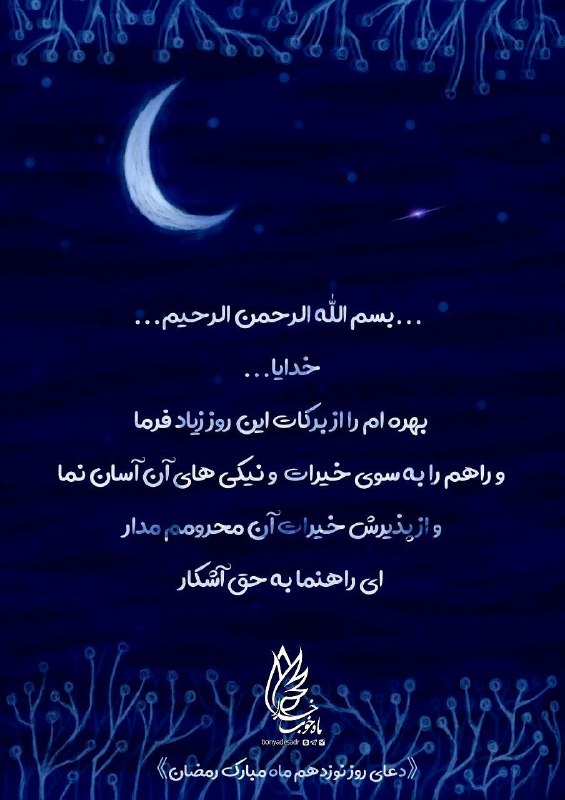 ...بسم الله الرحمن الرحیم...
خدایا...
بهره ام را از برکات این روز زیاد فرما
و راهم را به سوی خیرات و نیکی های آن آسان نما
و از پذیرش خیرات آن محرومم مدار
ای راهنما به حق آشکار
ماه خوب خدا
bonyadesadr
《دعای روز نوزدهم ماه مبارک رمضان》